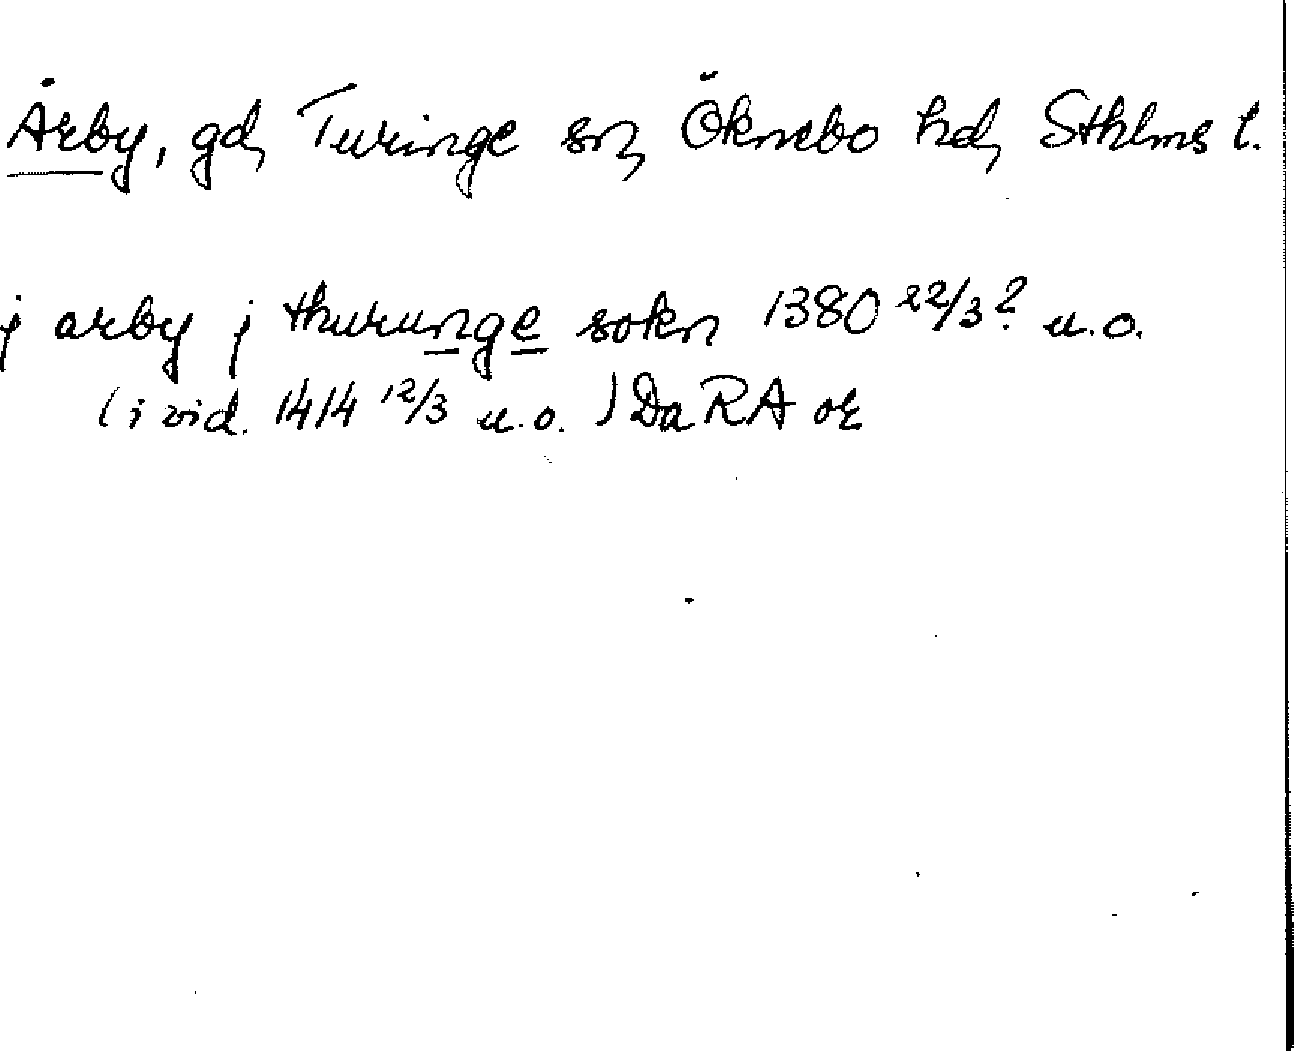 Årby, gd, Turinge sn, Öknebo hd, Sthlms l.
j arby j thurunge sokn 1380 22/3? u.o.
(i vid. 1414 12/3 u.o.) Da RA or